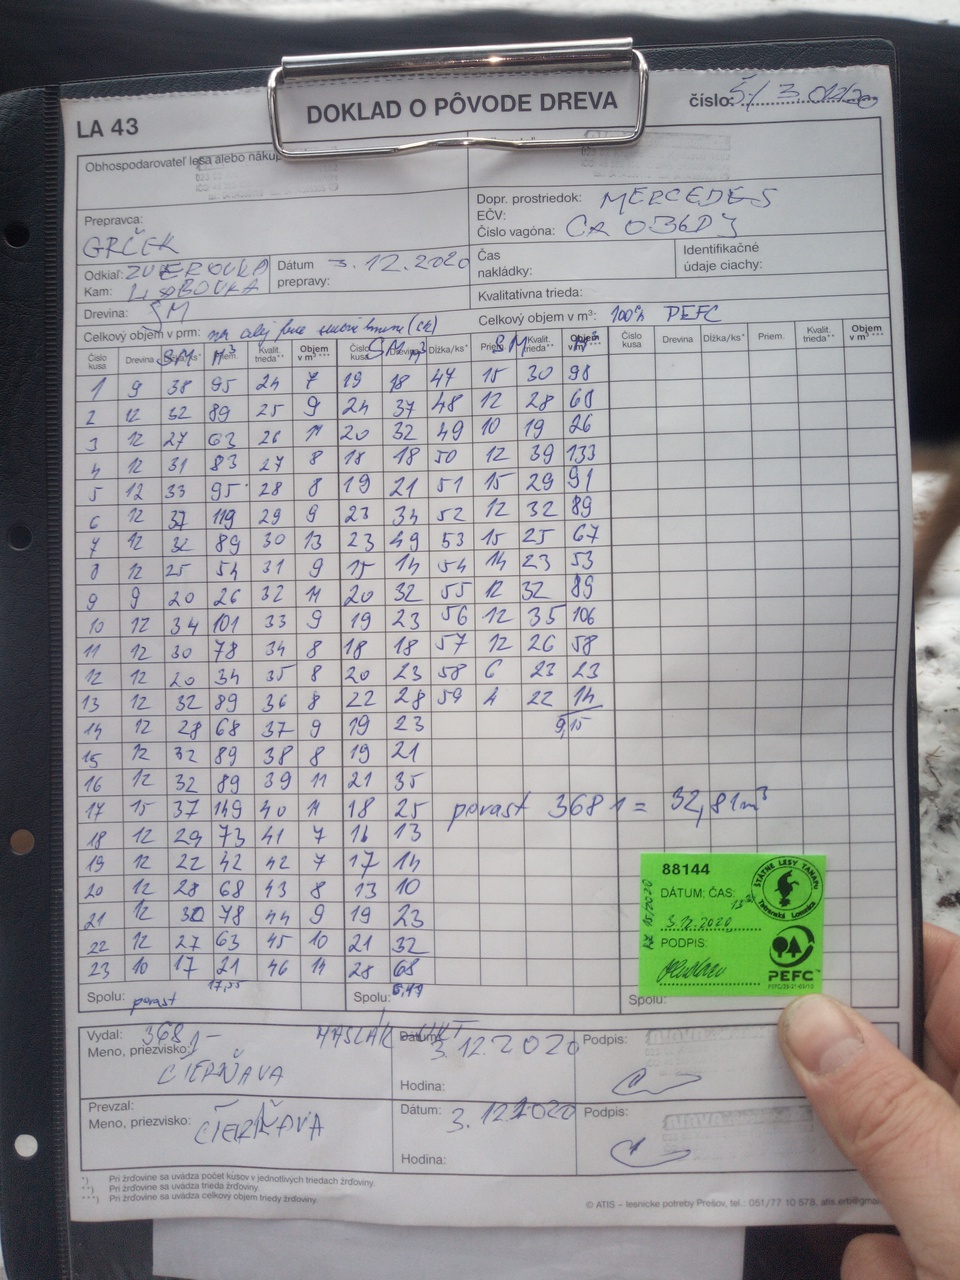 LA 43
DOKLAD O PÔVODE DREVA
číslo:
Obhospodarovateľ lesa alebo nákup
Prepravca:
GRČEK
Dopr. prostriedok: MERCEDES
EČV:
Číslo vagóna: CA 036DJ
Odkiaľ: ZVEROVKA
Kam:
Dátum prepravy: 3.12.2020
Čas nakládky:
Identifikačné údaje ciachy:
Drevina: SM
Kvalitatívna trieda:
Celkový objem v prm:
Celkový objem v m³: 100% PEFC
Číslo kusa Drevina Dĺžka/ks* Priem. Kvalit. trieda** Objem v m³ *** Číslo kusa Drevina Dĺžka/ks* Priem. Kvalit. trieda** Objem v m³ *** Číslo kusa Drevina Dĺžka/ks* Priem. Kvalit. trieda** Objem v m³ ***
SM M³ SM M³ SM M³
1 9 38 95 24 7 19 18 47 15 30 98
2 12 32 89 25 9 24 37 48 12 28 68
3 12 27 63 26 11 20 32 49 10 19 26
4 12 31 83 27 8 18 18 50 12 39 133
5 12 33 95 28 8 19 21 51 15 29 91
6 12 37 119 29 9 23 34 52 12 32 89
7 12 32 89 30 13 23 49 53 15 25 67
8 12 25 54 31 9 15 14 54 14 23 53
9 9 20 26 32 11 20 32 55 12 32 89
10 12 34 101 33 9 19 23 56 12 35 106
11 12 30 78 34 8 18 18 57 12 26 58
12 12 20 34 35 8 20 23 58 6 23 23
13 12 32 89 36 8 22 28 59 4 22 14
14 12 28 68 37 9 19 23 9,15
15 12 32 89 38 8 19 21
16 12 32 89 39 11 21 35
17 15 37 149 40 11 18 25 porast 3681 = 32,81m³
18 12 29 73 41 7 16 13
19 12 22 42 42 7 17 14
20 12 28 68 43 8 13 10
21 12 30 78 44 9 19 23
22 12 27 63 45 10 21 32
23 10 17 21 46 14 28 68
17,55
Spolu: porast
Spolu:
Spolu:
88144
DÁTUM: ČAS:
3.12.2020
PODPIS:
ŠTÁTNE LESY TANAPu
Tatranská Lomnica
PEFC
Vydal: 3681-
Meno, priezvisko:
CIERŇAVA
HASLÁK
Dátum: 3.12.2020
Hodina:
Podpis:
Prevzal:
Meno, priezvisko: CIERŇAVA
Dátum: 3.12.2020
Hodina:
Podpis:
*) Pri žrďovine sa uvádza počet kusov v jednotlivých triedach žrďoviny.
**) Pri žrďovine sa uvádza trieda žrďoviny.
***) Pri žrďovine sa uvádza celkový objem triedy žrďoviny.
© ATIS – lesnícke potreby Prešov, tel.: 051/77 10 578, atis.erb@gmai